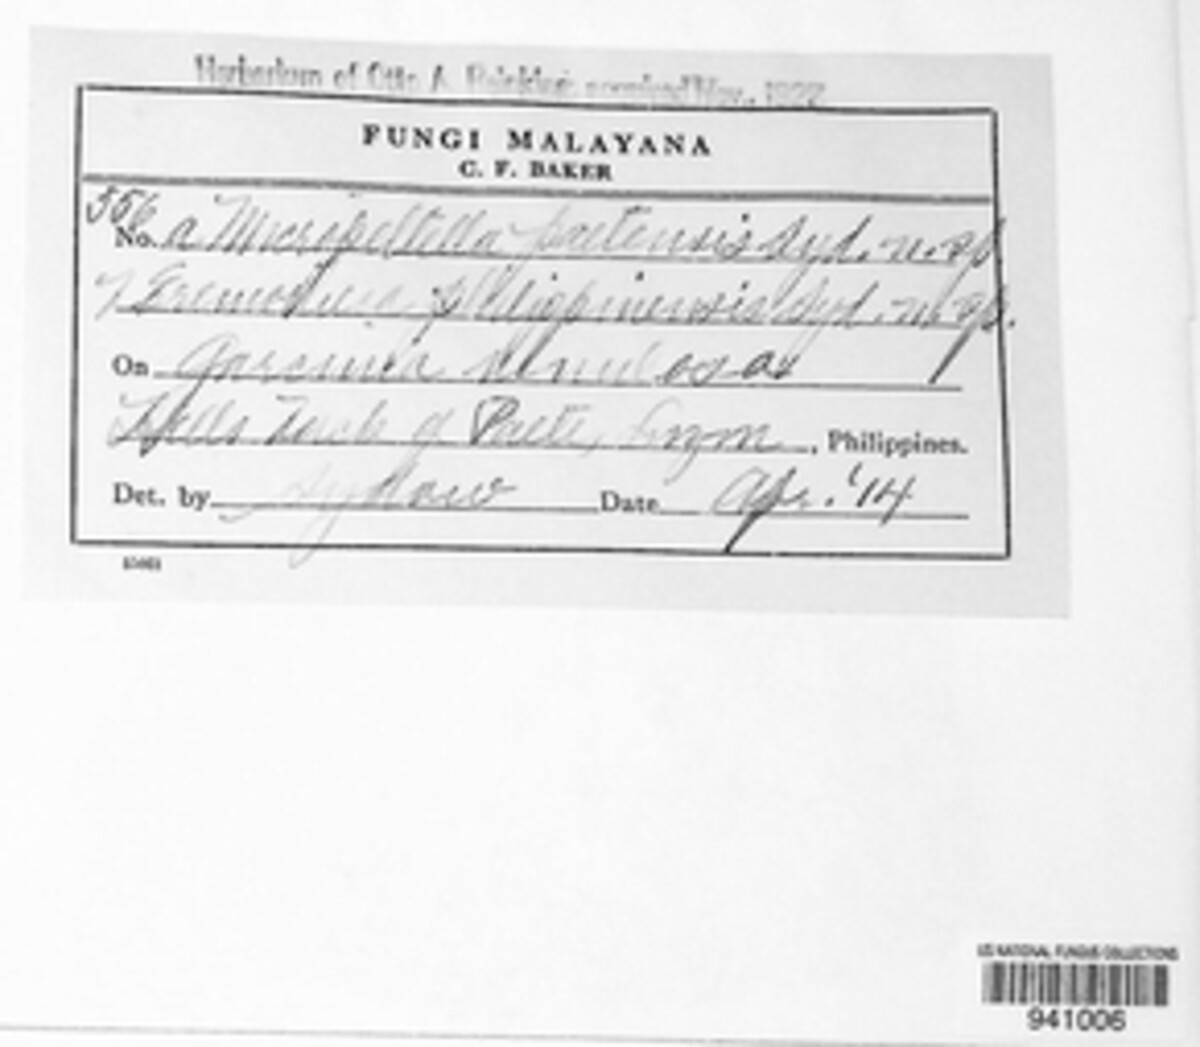 Herbarium of Otto A. Reinking received Nov., 1922
FUNGI MALAYANA
C. F. BAKER
356
No. a Micropeltella paetensis Syd. n. sp.
philippinensis Syd. n. sp.
On Garcinia venulosa
Hills back of Paete, Luzon, Philippines.
Det. by Sydow Date Apr. '14
US NATIONAL FUNGUS COLLECTIONS
941006